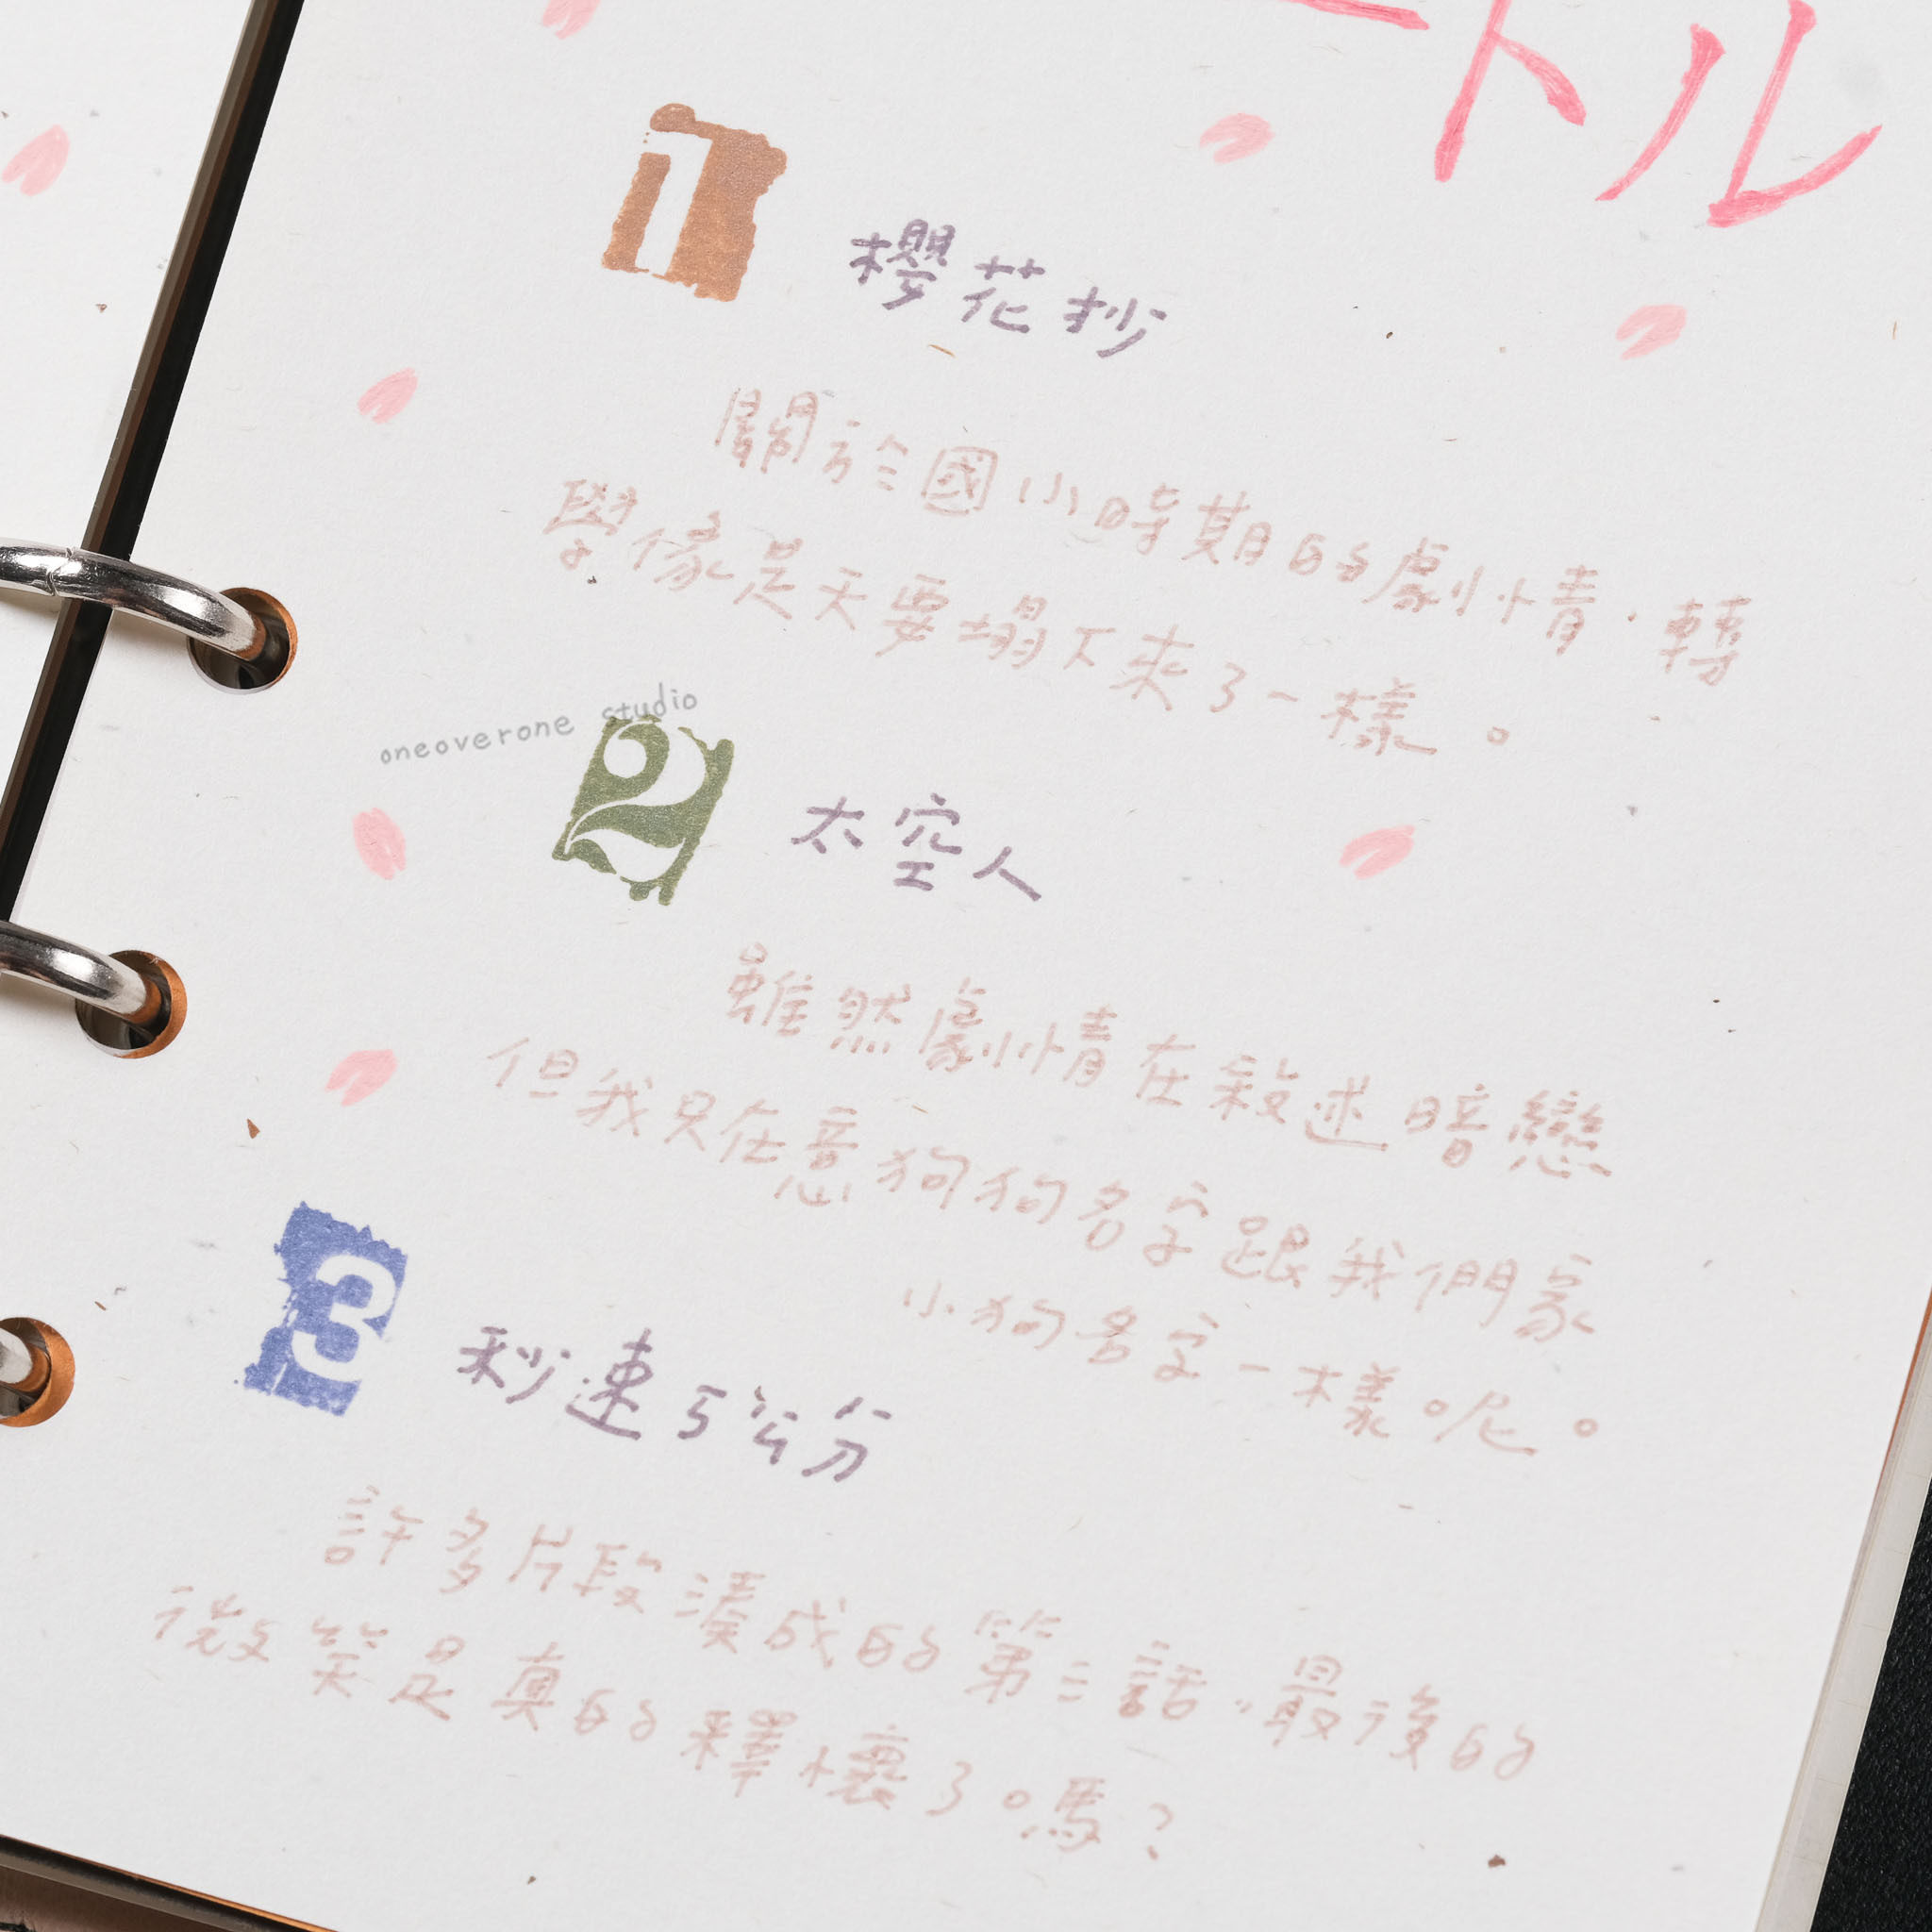 ートル
1 櫻花抄
關於國小時期的劇情，轉
學像是天要塌下來了一樣。
oneoverone studio
2 太空人
雖然劇情在敘述暗戀
但我只在意狗狗名字跟我們家
小狗名字一樣呢。
3 秒速5公分
許多片段湊成的第三話，最後的
微笑是真的釋懷了嗎？